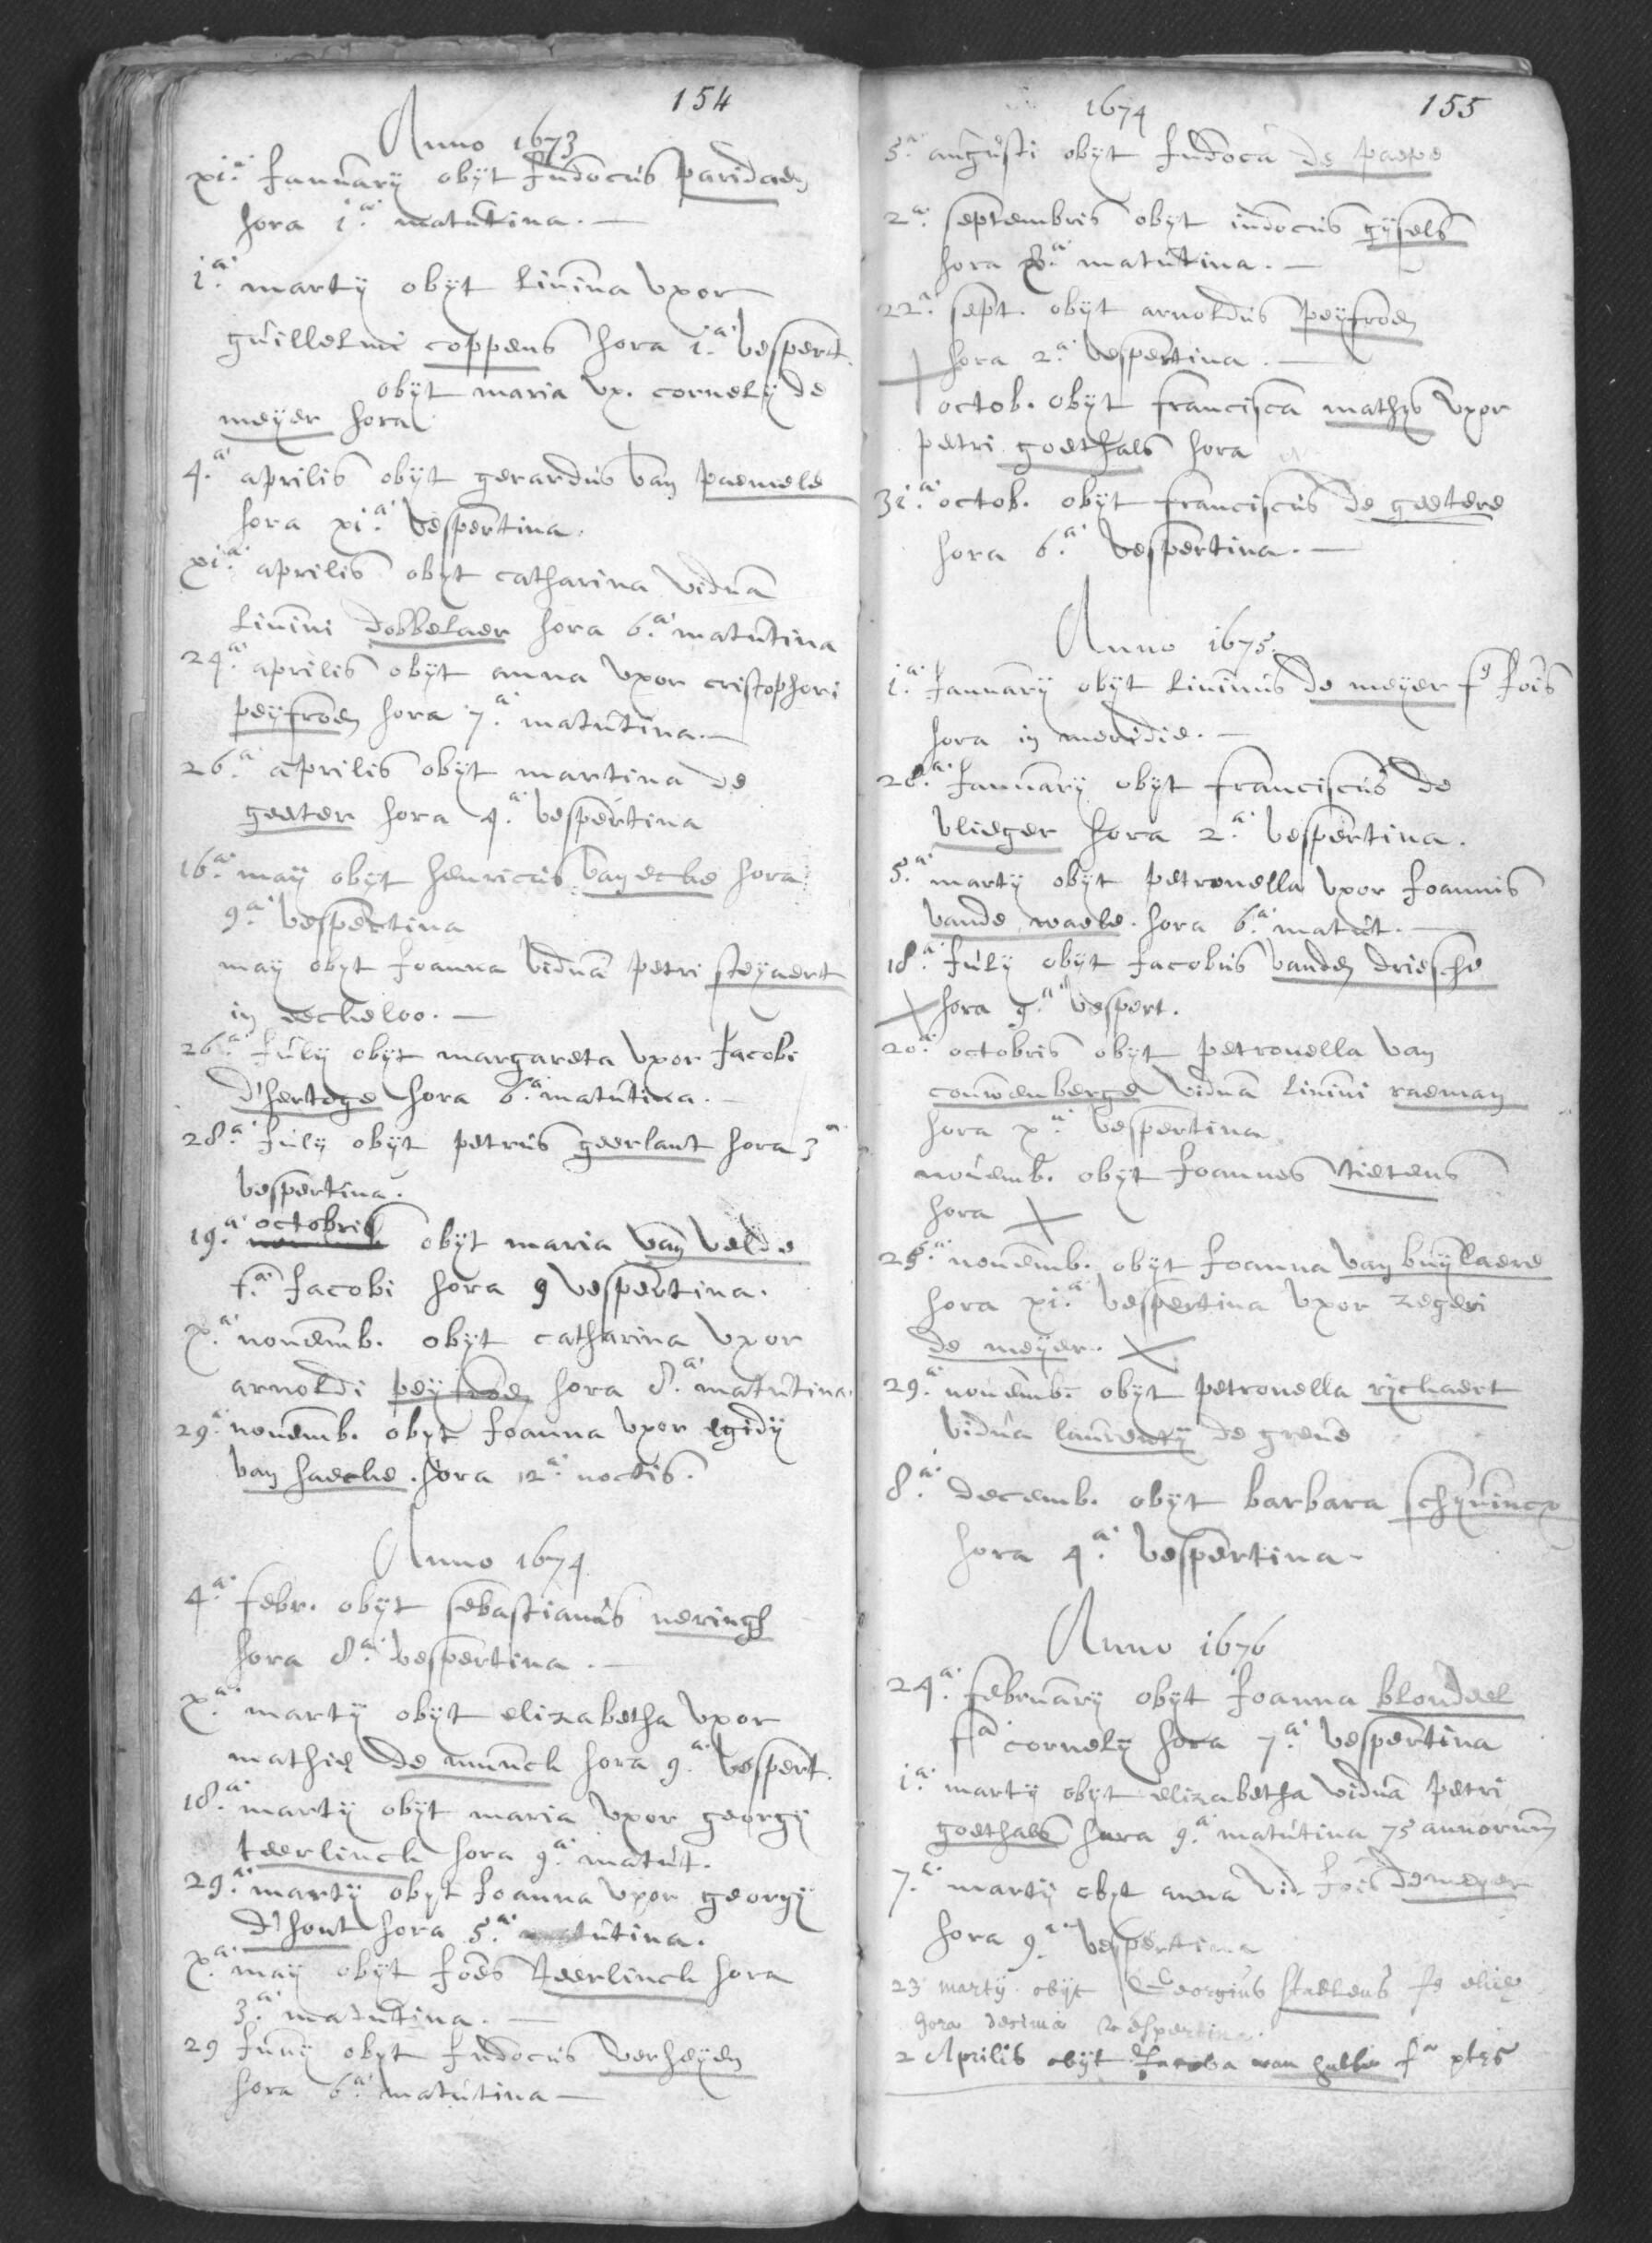 154
Anno 1673
xi.a January obijt Judocus paridaen
hora i.a matutina.
i.a martij obijt livina vxor
guillelmi coppens hora i.a vespert.
obijt maria vx. cornelij de
meyer hora
4.a aprilis obijt gerardus van paemele
hora xi.a vespertina.
xi.a aprilis obijt catharina vidua
livini dobbelaer hora 6.a matutina
24.a aprilis obijt anna vxor cristophori
peyfroen hora 7.a matutina.
26.a aprilis obijt martina de
geeter hora 4.a vespertina
16.a maij obijt henricus van ecke hora
9.a vespertina
may obijt Joanna vidua petri steyaert
in eecheloo.
26.a July obijt margareta vxor Jacobi
d'hertoge hora 6.a matutina.
28.a July obijt petrus geerlant hora 3a
vespertina.
octobris
19.a obijt maria van velde
f.a Jacobi hora 9 vespertina.
x.a novemb. obijt catharina vxor
arnoldi peyfroen hora 8.a matutina.
29.a novemb. obijt Joanna vxor egidij
van haecke. hora 12.a noctis.
Anno 1674
4.a febr. obijt sebastianus neringh
hora 8.a vespertina.
x.a martij obijt elizabetha vxor
mathie de munck hora 9.a vespert.
18.a martij obijt maria vxor georgij
teerlinck hora 9.a matut.
29.a martij obijt Joanna vxor georgij
d'hont hora 5.a matutina.
x.a may obijt Joes teerlinck hora
3.a matutina.
29 Junij obijt Judocus verheyen
hora 6.a matutina
155
1674
5.a augusti obijt Judoca de paepe
2.a septembris obijt iudocus gijsels
hora matutina.
22.a sept. obijt arnoldus peyfroen
hora 2.a vespertina.
octob. obijt francisca mathys vxor
petri goethals hora
31.a octob. obijt franciscus de geetere
hora 6.a vespertina.
Anno 1675.
i.a January obijt livinus de meyer fs Jois
hora in meridie.
28.a January obijt franciscus de
vlieger hora 2.a vespertina.
5.a martij obijt petronella vxor Joannis
vande waele. hora 6.a matut.
18.a July obijt Jacobus vanden driesche
hora 9.a vespert.
20.a octobris obijt petronella van
couwenberge vidua livini raeman
hora x.a vespertina
novemb. obijt Joannes tietens
hora
25.a novemb. obijt Joanna van buylaere
hora xi.a vespertina vxor zegeri
de meyer.
29.a novemb. obijt petronella ryckaert
vidua laurentij de greve
8.a decemb. obijt barbara schyvincx
hora 4.a vespertina.
Anno 1676
24.a february obijt Joanna blondeel
fa cornelij hora 7.a vespertina
i.a martij obijt elizabetha vidua petri
goethals hora 9.a matutina 75 annorum
7.a martij obijt anna vid. Jois de meyer
hora 9.a vespertina
23 martij obijt Georgius staelens fs elie
hora decima vespertina.
2 Aprilis obijt Jacoba van hulle fa